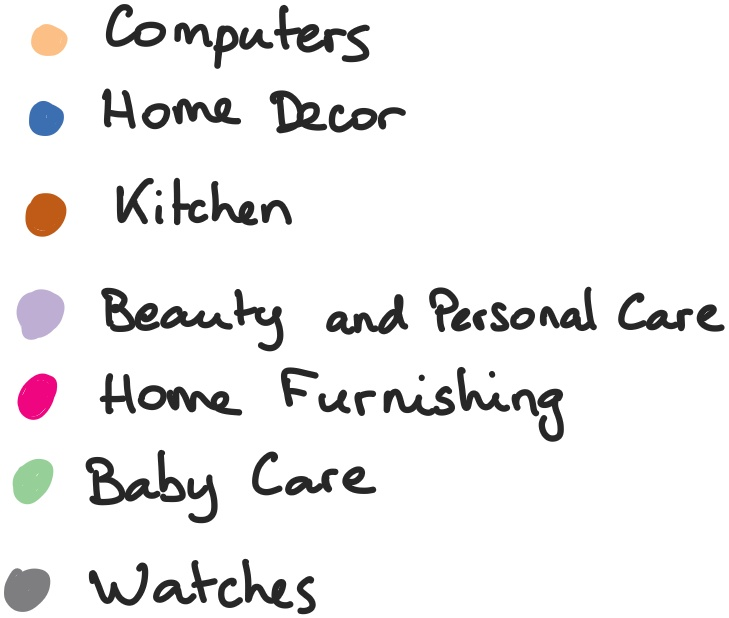 Computers
Home Decor
Kitchen
Beauty and Personal Care
Home Furnishing
Baby Care
Watches